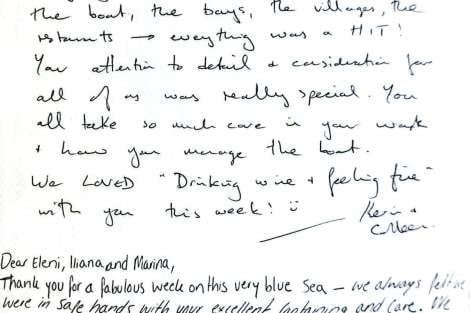 the boat, the bays, the villages, the
restaurants → everything was a HIT!
Your attention to detail & consideration for
all of us was really special. You
all take so much care in your work
+ how you manage the boat.
We LOVED "Drinking wine + feeling fine"
with you this week! :)
Kevin +
Colleen
Dear Eleni, Iliana and Marina,
Thank you for a fabulous week on this very blue Sea – we always felt we
were in safe hands with your excellent Captaining and Care. We